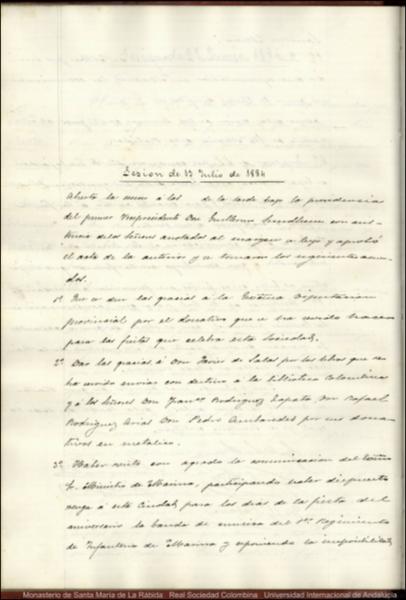 Sesion de 13 Julio de 1884
Abierta la sesion á las de la tarde bajo la presidencia
del primer Vicepresidente Don Guillermo Sundheim con asis-
tencia de los Señores anotados al margen se leyó y aprobó
el acta de la anterior y se tomaron los siguientes acuer-
dos.
1º. dar las gracias á la Diputacion
Provincial por el donativo que se ha servido
para las fiestas que celebra esta Sociedad.
2º. Dar las gracias á Don Javier de Salas por los libros que se
ha servido enviar con destino á la biblioteca Colombina
y á los Señores Don Franco. Rodriguez Zapata Don Rafael
Rodriguez Arias Don Pedro por sus dona-
tivos en metalico.
3º. Haber visto con agrado la comunicacion del Exmo
Sr. Ministro de Marina, participando haber dispuesto
venga á esta Ciudad para los dias de la fiesta del
aniversario la banda de musica del 1er. Regimiento
de Infanteria de Marina y exponiendo la imposibilidad
Monasterio de Santa María de La Rábida : Real Sociedad Colombina : Universidad Internacional de Andalucía